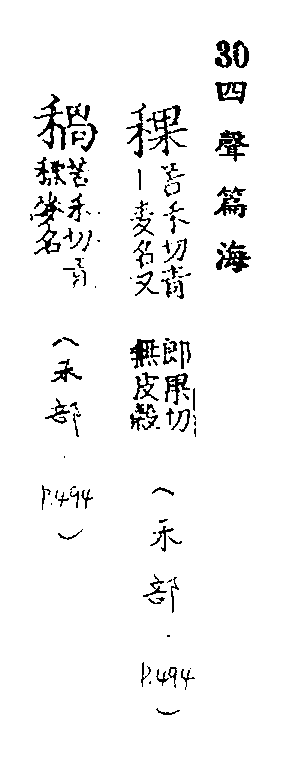 30四聲篇海
稞苦禾切青｜麦名又郎果切無皮穀（禾部．P.494）
稩苦禾切青稞麥名（禾部．P.494）